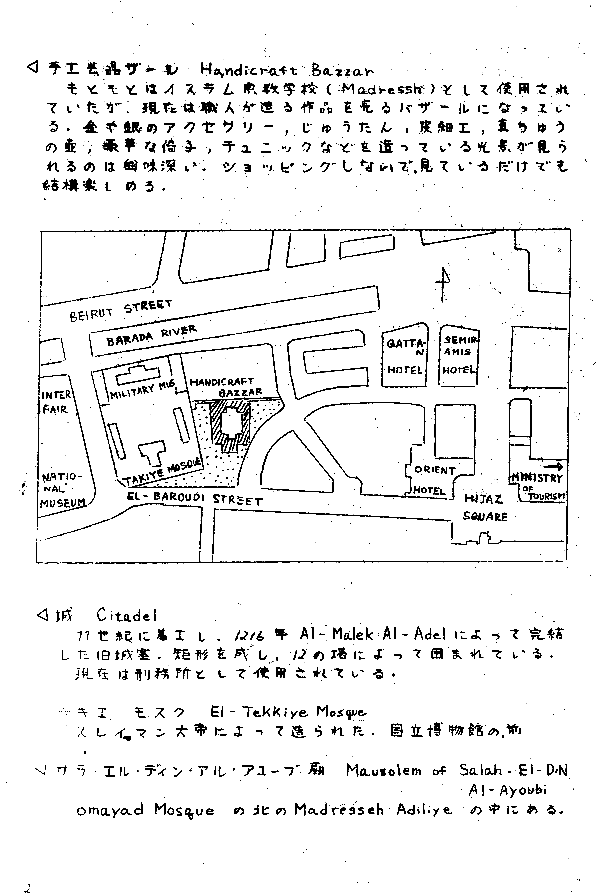 ◁ 手工芸品ザール Handicraft Bazzar
もともとはイスラム宗教学校(Madressh)として使用され
ていたが、現在は職人が造る作品を売るバザールになってい
る。金や銀のアクセサリー,じゅうたん,皮細工,真ちゅう
の壺,豪華な椅子,チュニックなどを造っている光景が見ら
れるのは興味深い。ショッピングしないで,見ているだけでも
結構楽しめる。
BEIRUT STREET
BARADA RIVER
QATTA-
N
HOTEL
SEMIR
AMIS
HOTEL
INTER
FAIR
MILITARY MUS
HANDICRAFT
BAZZAR
TAKIYE MOSQUE
NATIO-
NAL
MUSEUM
EL-BAROUDI STREET
ORIENT
HOTEL
HIJAZ
SQUARE
MINISTRY
OF
TOURISM
◁ 城 Citadel
11世紀に着工し、1216年 Al-Malek Al-Adelによって完結
した旧城塞。矩形を成し、12の塔によって囲まれている。
現在は刑務所として使用されている。
キエ モスク El-Tekkiye Mosque
スレイマン大帝によって造られた。国立博物館の,前
◁ サラ・エル・ディン・アル・アユーブ廟 Mausolem of Salah-El-DiN
Al-Ayoubi
omayad Mosque の北のMadresseh Adiliye の中にある。
2